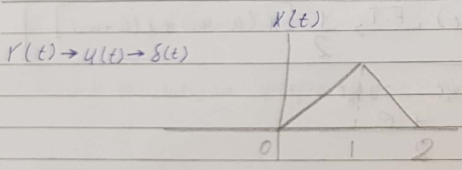 x(t)
r(t)→u(t)→δ(t)
0 1 2